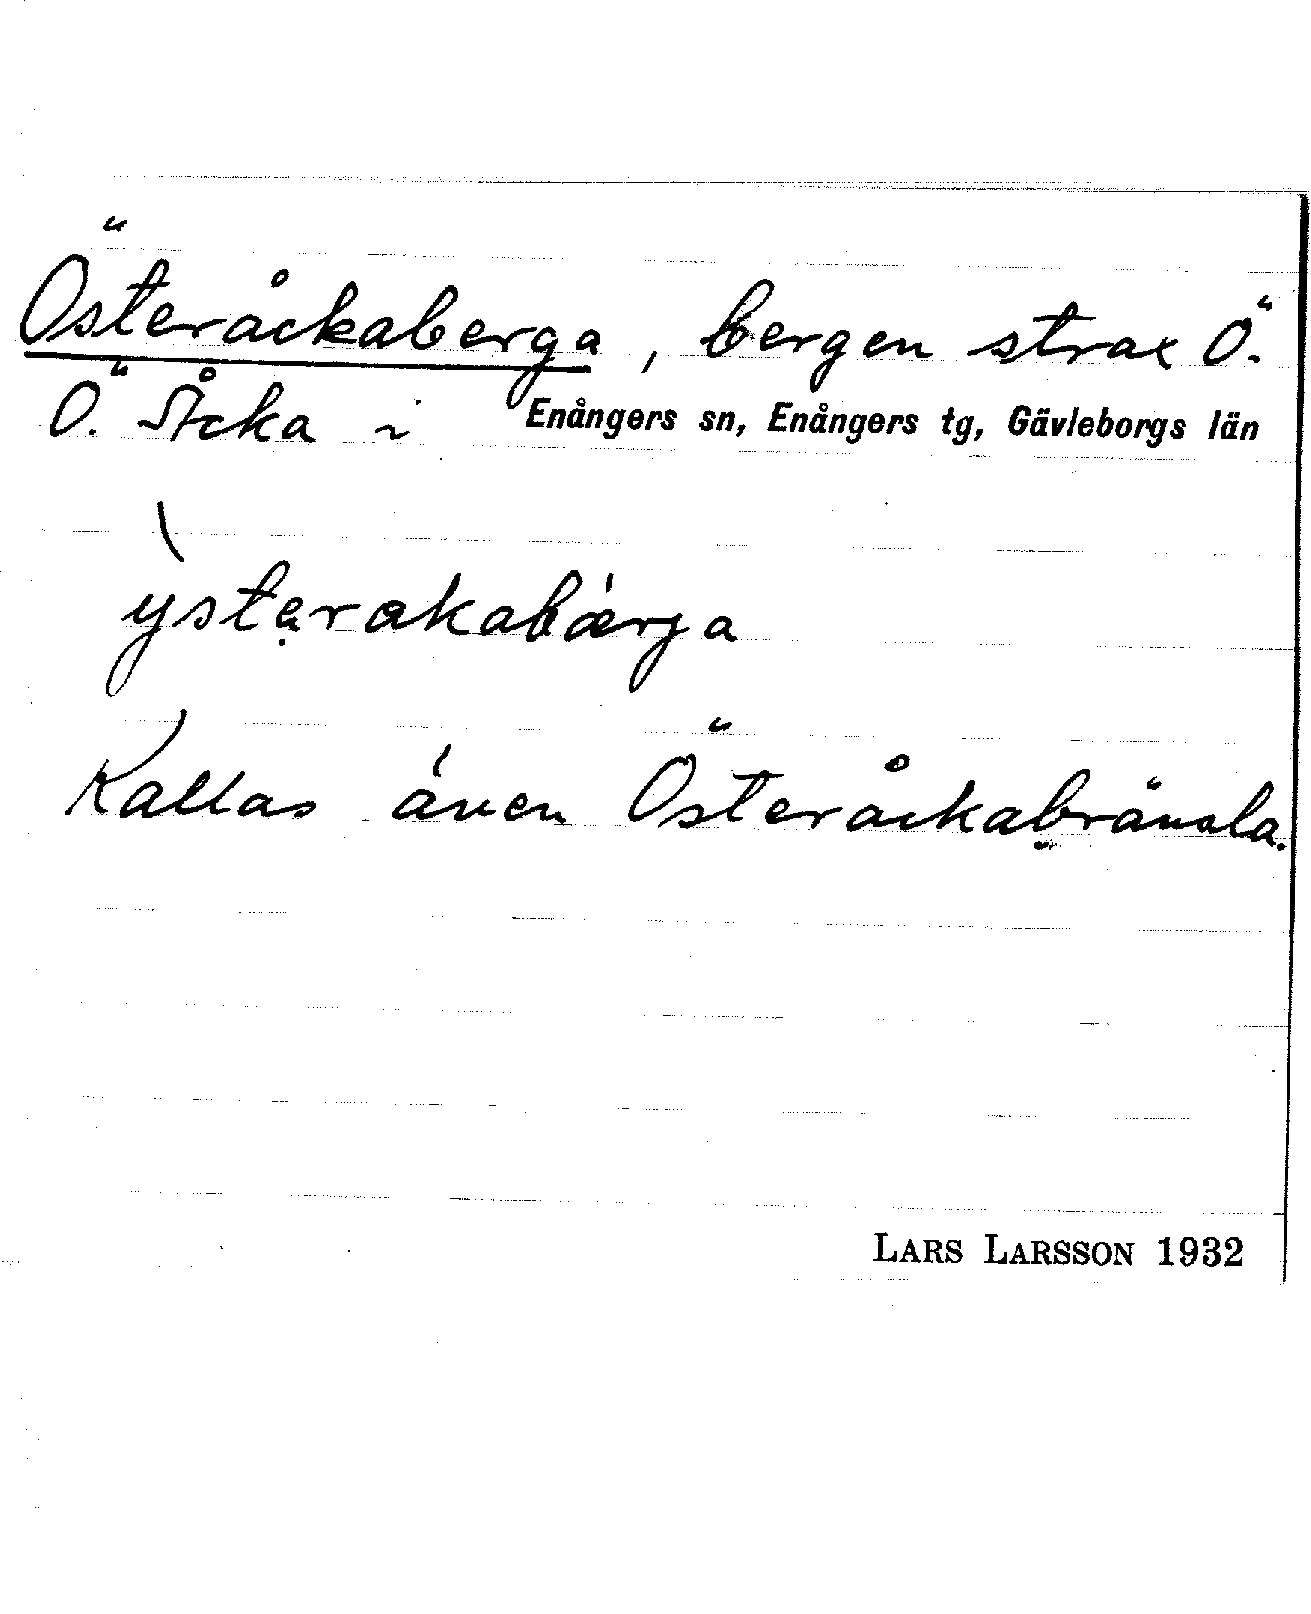 Österåckaberga, bergen strax Ö.
Ö. Åcka i Enångers sn, Enångers tg, Gävleborgs län
ỳstərakabǽrja
Kallas även Österåckabränsla.
LARS LARSSON 1932